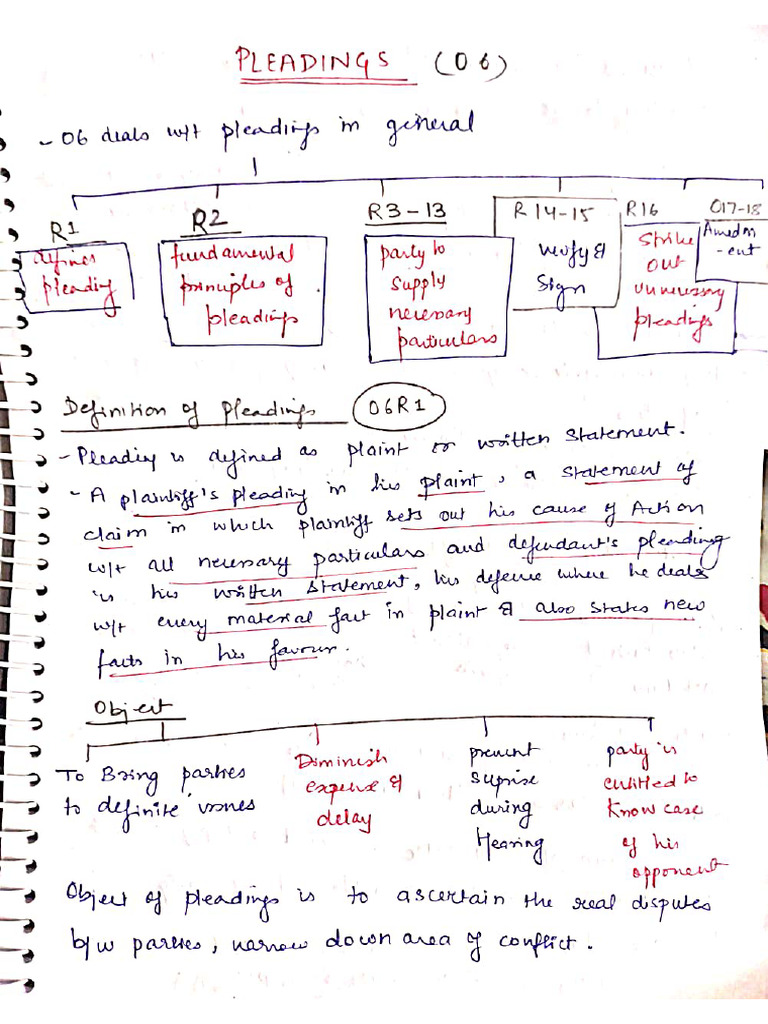 PLEADINGS (O6)
- O6 deals w/t pleadings in general
R1
defines
pleading
R2
fundamental
principles of
pleadings
R3-13
party to
supply
necessary
particulars
R 14-15
verify &
Sign
R16
Strike
out
unnecessary
pleadings
O17-18
Amedm
-ent
Definition of Pleadings O6R1
- Pleading is defined as plaint or written statement.
- A plaintiff's pleading in his plaint, a statement of
claim in which plaintiff sets out his cause of Action
w/t all necessary particulars and defendant's pleading
is his written statement, his defense where he deals
w/t every material fact in plaint & also states new
facts in his favour.
Object
To Bring parties
to definite issues
Diminish
expense &
delay
prevent
suprise
during
Hearing
party is
entitled to
Know case
of his
opponent
Object of pleadings is to ascertain the real disputes
b/w parties, narrow down area of conflict.